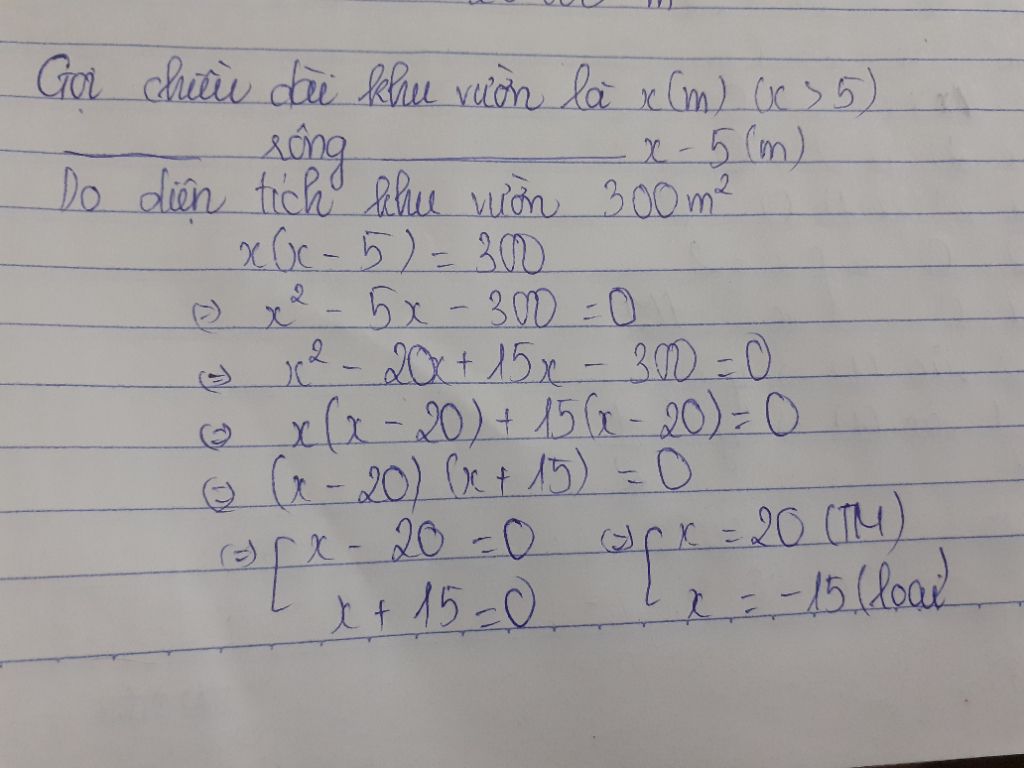 Gọi chiều dài khu vườn là x(m) (x > 5)
rộng x - 5 (m)
Do diện tích khu vườn 300m²
x(x - 5) = 300
⇔ x² - 5x - 300 = 0
⇔ x² - 20x + 15x - 300 = 0
⇔ x(x - 20) + 15(x - 20) = 0
⇔ (x - 20) (x + 15) = 0
⇔ [ x - 20 = 0 ⇔ [ x = 20 (TM)
x + 15 = 0 x = -15 (loại)